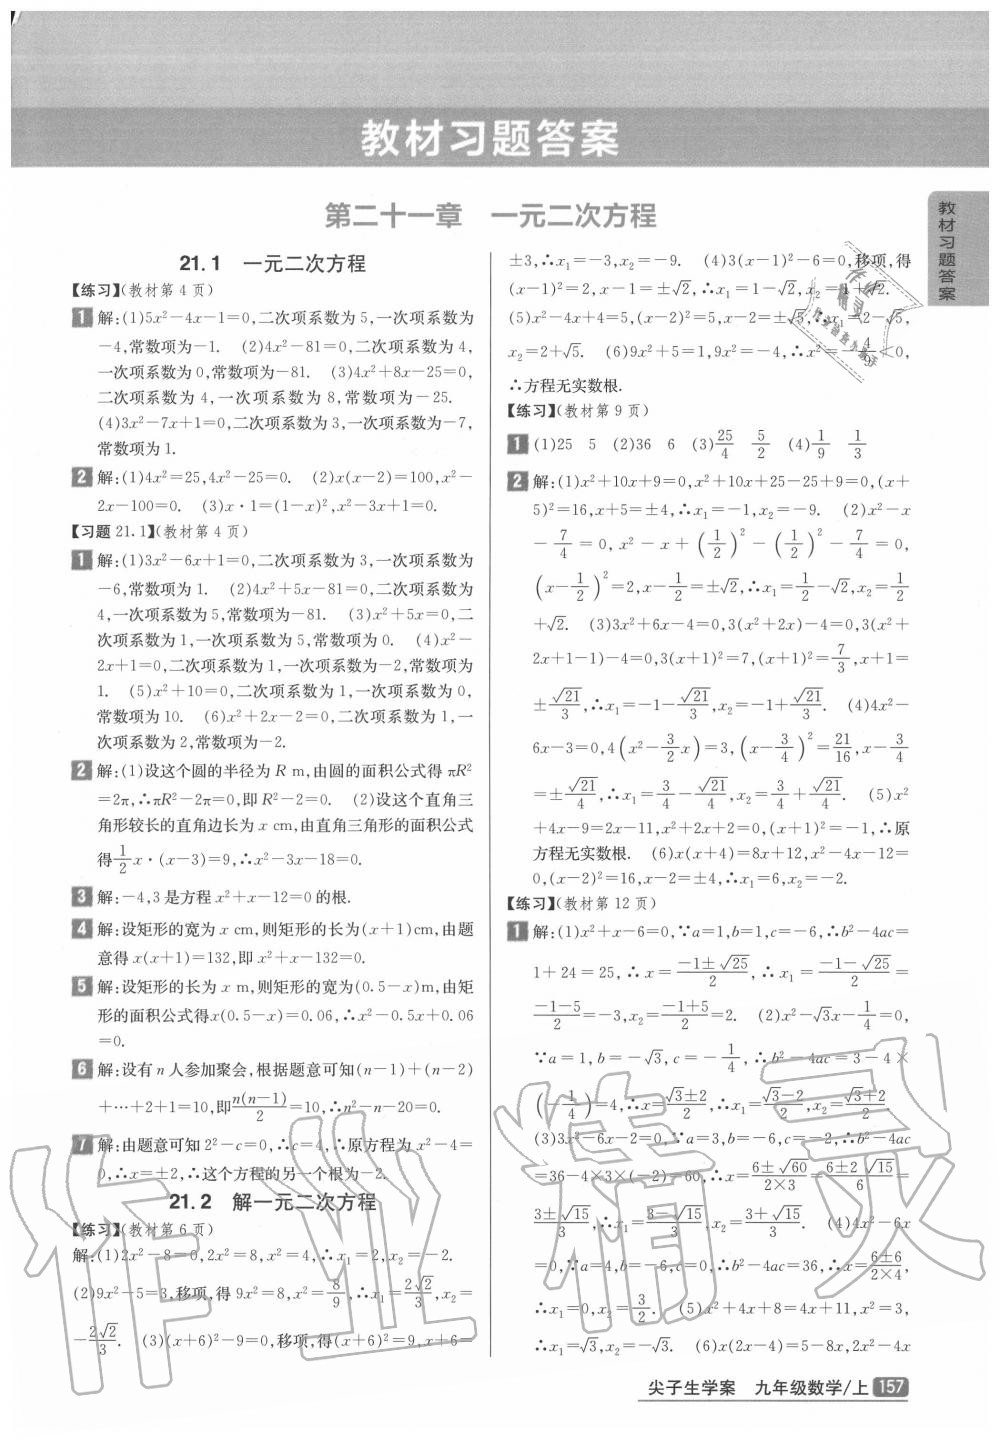 教材习题答案
第二十一章 一元二次方程
教材习题答案
21.1 一元二次方程
【练习】(教材第4页)
1 解:(1)5x²-4x-1=0,二次项系数为5,一次项系数为
-4,常数项为-1. (2)4x²-81=0,二次项系数为4,
一次项系数为0,常数项为-81. (3)4x²+8x-25=0,
二次项系数为4,一次项系数为8,常数项为-25.
(4)3x²-7x+1=0,二次项系数为3,一次项系数为-7,
常数项为1.
2 解:(1)4x²=25,4x²-25=0. (2)x(x-2)=100,x²-
2x-100=0. (3)x·1=(1-x)²,x²-3x+1=0.
【习题21.1】(教材第4页)
1 解:(1)3x²-6x+1=0,二次项系数为3,一次项系数为
-6,常数项为1. (2)4x²+5x-81=0,二次项系数为
4,一次项系数为5,常数项为-81. (3)x²+5x=0,二
次项系数为1,一次项系数为5,常数项为0. (4)x²-
2x+1=0,二次项系数为1,一次项系数为-2,常数项为
1. (5)x²+10=0,二次项系数为1,一次项系数为0,
常数项为10. (6)x²+2x-2=0,二次项系数为1,一
次项系数为2,常数项为-2.
2 解:(1)设这个圆的半径为R m,由圆的面积公式得πR²
=2π,∴πR²-2π=0,即R²-2=0. (2)设这个直角三
角形较长的直角边长为x cm,由直角三角形的面积公式
得1/2x·(x-3)=9,∴x²-3x-18=0.
3 解:-4,3是方程x²+x-12=0的根.
4 解:设矩形的宽为x cm,则矩形的长为(x+1)cm,由题
意得x(x+1)=132,即x²+x-132=0.
5 解:设矩形的长为x m,则矩形的宽为(0.5-x)m,由矩
形的面积公式得x(0.5-x)=0.06,∴x²-0.5x+0.06
=0.
6 解:设有n人参加聚会,根据题意可知(n-1)+(n-2)
+…+2+1=10,即n(n-1)/2=10,∴n²-n-20=0.
7 解:由题意可知2²-c=0,∴c=4,∴原方程为x²-4=
0,∴x=±2,∴这个方程的另一个根为-2.
21.2 解一元二次方程
【练习】(教材第6页)
解:(1)2x²-8=0,2x²=8,x²=4,∴x₁=2,x₂=-2.
(2)9x²-5=3,移项,得9x²=8,x²=8/9,∴x₁=2√2/3,x₂=
-2√2/3. (3)(x+6)²-9=0,移项,得(x+6)²=9,x+6=
±3,∴x₁=-3,x₂=-9. (4)3(x-1)²-6=0,移项,得
(x-1)²=2,x-1=±√2,∴x₁=1-√2,x₂=1+√2.
(5)x²-4x+4=5,(x-2)²=5,x-2=±√5,∴x₁=2-√5,
x₂=2+√5. (6)9x²+5=1,9x²=-4,∴x²=-4/9<0,
∴方程无实数根.
【练习】(教材第9页)
1 (1)25 5 (2)36 6 (3)25/4 5/2 (4)1/9 1/3
2 解:(1)x²+10x+9=0,x²+10x+25-25+9=0,(x+
5)²=16,x+5=±4,∴x₁=-1,x₂=-9. (2)x²-x
-7/4=0,x²-x+(1/2)²-(1/2)²-7/4=0,
(x-1/2)²=2,x-1/2=±√2,∴x₁=1/2-√2,x₂=1/2
+√2. (3)3x²+6x-4=0,3(x²+2x)-4=0,3(x²+
2x+1-1)-4=0,3(x+1)²=7,(x+1)²=7/3,x+1=
±√21/3,∴x₁=-1-√21/3,x₂=-1+√21/3. (4)4x²-
6x-3=0,4(x²-3/2x)=3,(x-3/4)²=21/16,x-3/4
=±√21/4,∴x₁=3/4-√21/4,x₂=3/4+√21/4. (5)x²
+4x-9=2x-11,x²+2x+2=0,(x+1)²=-1,∴原
方程无实数根. (6)x(x+4)=8x+12,x²-4x-12=
0,(x-2)²=16,x-2=±4,∴x₁=6,x₂=-2.
【练习】(教材第12页)
1 解:(1)x²+x-6=0,∵a=1,b=1,c=-6,∴b²-4ac=
1+24=25,∴x=-1±√25/2,∴x₁=-1-√25/2=
-1-5/2=-3,x₂=-1+5/2=2. (2)x²-√3x-1/4=0,
∵a=1,b=-√3,c=-1/4,∴b²-4ac=3-4×
(-1/4)=4,∴x=√3±2/2,∴x₁=√3-2/2,x₂=√3+2/2.
(3)3x²-6x-2=0,∵a=3,b=-6,c=-2,∴b²-4ac
=36-4×3×(-2)=60,∴x=6±√60/2×3=6±2√15/6=
3±√15/3,∴x₁=3-√15/3,x₂=3+√15/3. (4)4x²-6x
=0,∵a=4,b=-6,c=0,∴b²-4ac=36,∴x=6±6/2×4,
∴x₁=0,x₂=3/2. (5)x²+4x+8=4x+11,x²=3,
∴x₁=√3,x₂=-√3. (6)x(2x-4)=5-8x,2x²-4x
尖子生学案 九年级数学/上 157
作业精灵